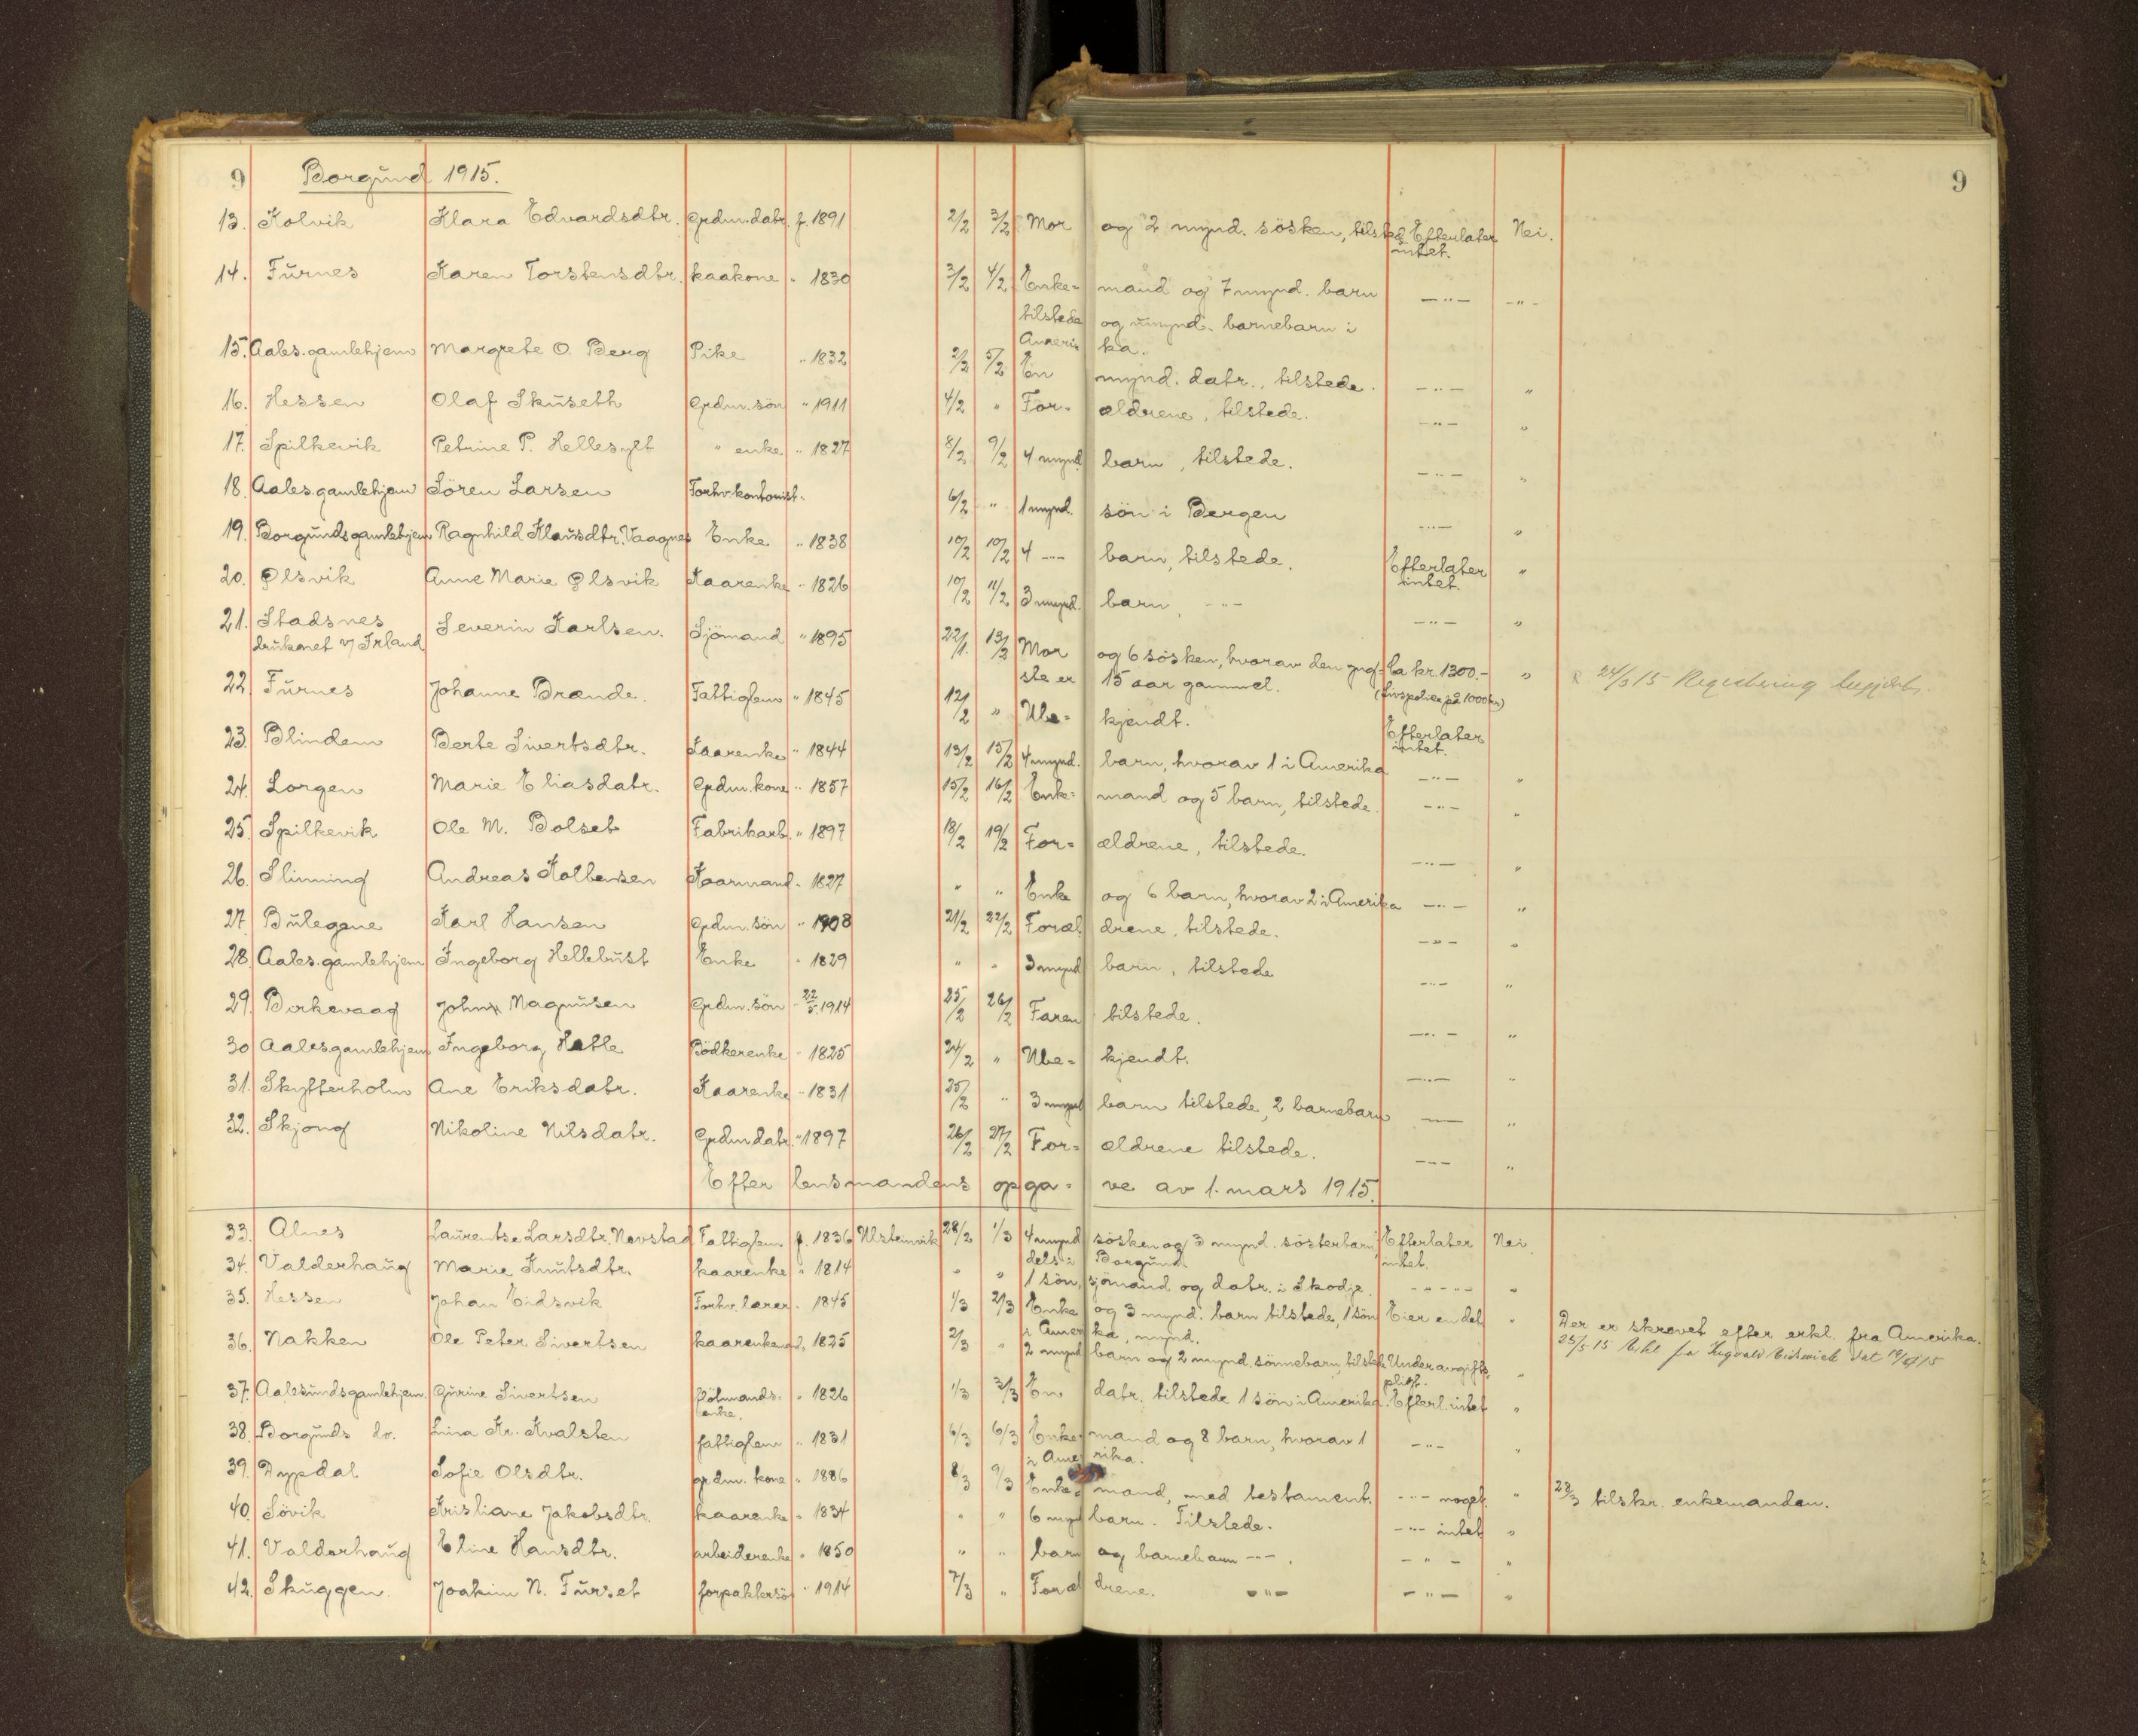 9 Borgund 1915. 9
13. Kolvik Klara Edvardsdtr. Grdm.datr. f. 1891 2/2 3/2 Mor og 2 mynd. sösken, tilsted Efterlater Nei.
intet.
14. Furnes Karen Torstensdtr. kaakone " 1830 3/2 4/2 Enke= mand og 7 mynd. barn —"— —"—
tilstede og umynd. barnebarn i
Ameri= ka.
15. Aales.gamlehjem Margrete O. Berg Pike " 1832 2/2 5/2 En mynd. datr., tilstede. —"— "
16. Hessen Olaf Skuseth Grdm.sön " 1911 4/2 " For= ældrene, tilstede. —"— "
17. Spilkevik Petrine P. Hellesylt " enke " 1827 8/2 9/2 4 mynd. barn, tilstede. —"— "
18. Aales.gamlehjem Sören Larsen Forhv.kontorist. 6/2 " 1 mynd. sön i Bergen —"— "
19. Borgunds gamlehjem Ragnhild Klausdtr. Vaagnes Enke " 1838 10/2 10/2 4 —"— barn, tilstede. Efterlater "
intet.
20. Ølsvik Anne Marie Ølsvik Kaarenke " 1826 10/2 11/2 3 mynd. barn, —"— —"— "
21. Stadsnes Severin Karlsen. Sjömand " 1895 22/1. 13/2 Mor og 6 sösken, hvorav den yng= Ca kr. 1300.- " 24/3 15 Registrering begjært.
druknet v/ Irland ste er 15 aar gammel. (Livspolise på 1000 kr)
22. Furnes Johanne Brænde. Fattiglem " 1845 12/2 " Ube= kjendt. Efterlater
intet.
23. Blindem Berte Sivertsdtr. Kaarenke " 1844 13/2 15/2 4 mynd. barn, hvorav 1 i Amerika —"— "
24. Lorgen Marie Eliasdatr. Grdm.kone " 1857 15/2 16/2 Enke= mand og 5 barn, tilstede. —"— "
25. Spilkevik Ole M. Bolset Fabrikarb. " 1897 18/2 19/2 For= ældrene, tilstede. —"— "
26. Slinning Andreas Kolbensen Kaarmand " 1827 " " Enke og 6 barn, hvorav 2 i Amerika —"— "
27. Bulegane Karl Hansen Grdm.sön " 1908 21/2 22/2 Foræl drene, tilstede. —"— "
28. Aales.gamlehjem Ingeborg Hellebust Enke " 1829 " " 3 mynd barn, tilstede —"— "
29. Borkevaag John Magnusen Grdm.sön " 22/5.1914 25/2 26/2 Faren tilstede. —"— "
30 Aales.gamlehjem Ingeborg Hatle Bödkerenke " 1825 24/2 " Ube= kjendt. —"— "
31. Skytterholm Ane Eriksdatr. Kaarenke " 1831 25/2 " 3 mynd barn tilstede, 2 barnebarn —"— "
32. Skjong Nikoline Nilsdatr. Grdm.datr. " 1897 26/2 27/2 For= ældrene tilstede. —"— "
Efter lensmandens opga= ve av 1. mars 1915.
33. Alnes Laurentse Larsdtr. Novstad Fattiglem f. 1836 Ulsteinvik 28/2 1/3 4 mynd sösken og 3 mynd. sösterbarn, Efterlater Nei.
dels i Borgund. intet.
34. Valderhaug Marie Knutsdtr. kaarenke " 1814 " " 1 sön, sjömand og datr. i Skodje. —"— "
35. Hessen Johan Eidsvik Forhv. lærer " 1845 1/3 2/3 Enke og 3 mynd. barn tilstede, 1 sön Eier en del " Der er skrevet efter erkl. fra Amerika.
i Ameri ka, mynd. 25/5 15 Erkl fra Ingvald Eidsvik dat
36. Nakken Ole Peter Sivertsen kaarenkemd. " 1825 2/3 " 2 mynd barn og 2 mynd. sönnebarn, tilstede Under avgifts= "
pligt.
37. Aalesundsgamlehjem. Gurine Sivertsen flötmands- " 1826 1/3 3/3 En datr. tilstede 1 sön i Amerika. Efterl. intet "
enke.
38. Borgunds do. Lina Kr. Kvalsten fattiglem " 1831 6/3 6/3 Enke= mand og 8 barn, hvorav 1 —"— "
i Ame= rika.
39. Dypdal Sofie Olsdtr. grdm. kone " 1886 8/3 9/3 Enke= mand, med testament. —"— noget. " 23/3 tilskr. enkemanden.
40. Sövik Kristiane Jakobsdtr. kaarenke " 1834 " " 6 mynd barn. Tilstede. —"— intet "
41. Valderhaug Eline Hansdtr. arbeiderenke " 1850 " " barn og barnebarn —"—. —"— "
42. Skuggen. Joakim N. Furset forpaktersön " 1914 7/3 " Foræl drene. —"— —"— "